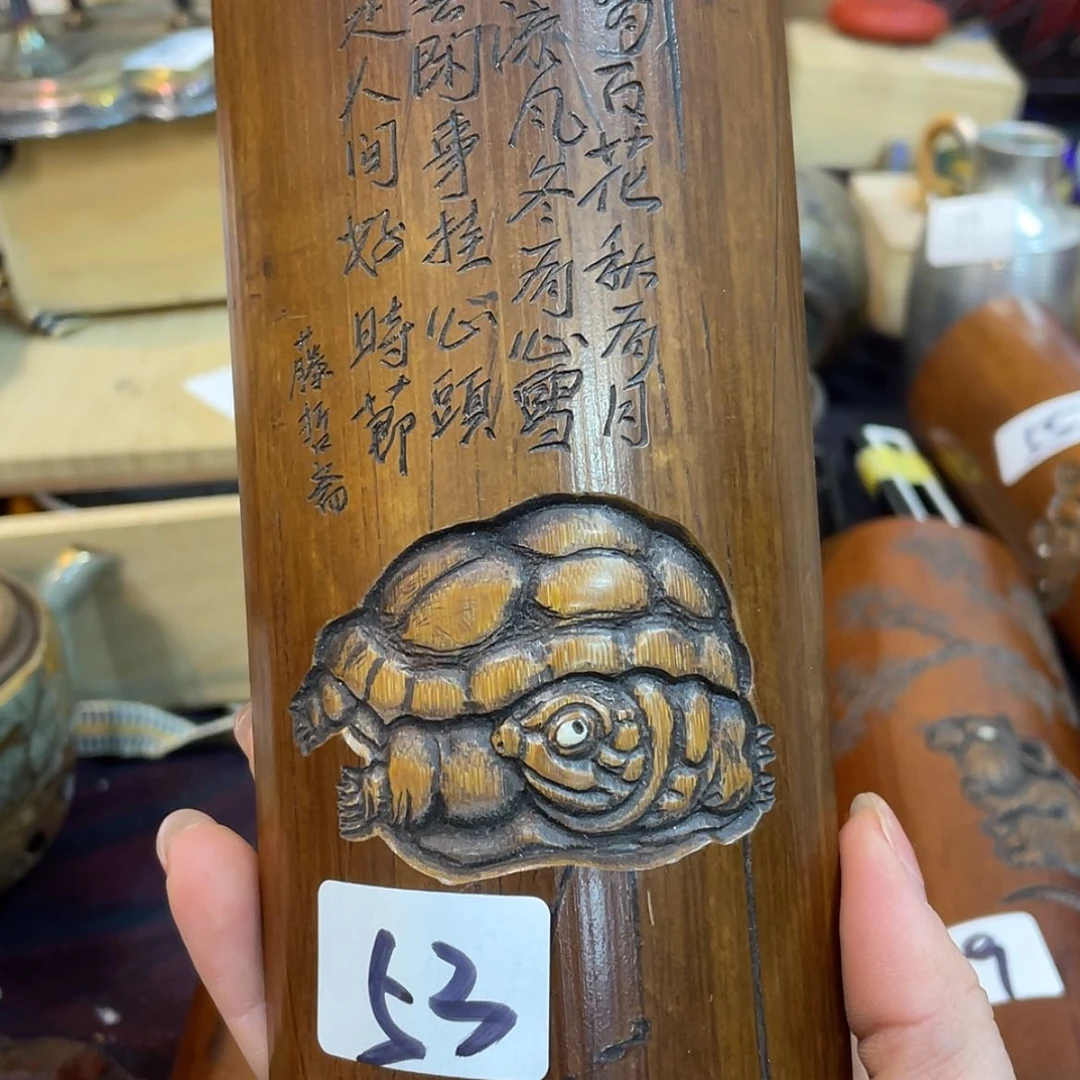 有百花秋有月
涼风冬有雪
闲事挂心頭
是人间好時節
藤哲斎
53
9